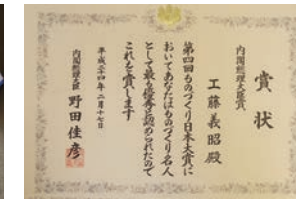 賞状
内閣総理大臣賞
工藤義昭殿
第四回ものづくり日本大賞に
おいてあなたはものづくり名人
として最も優秀と認められたので
これを賞します
平成二十四年二月十七日
内閣総理大臣 野田佳彦